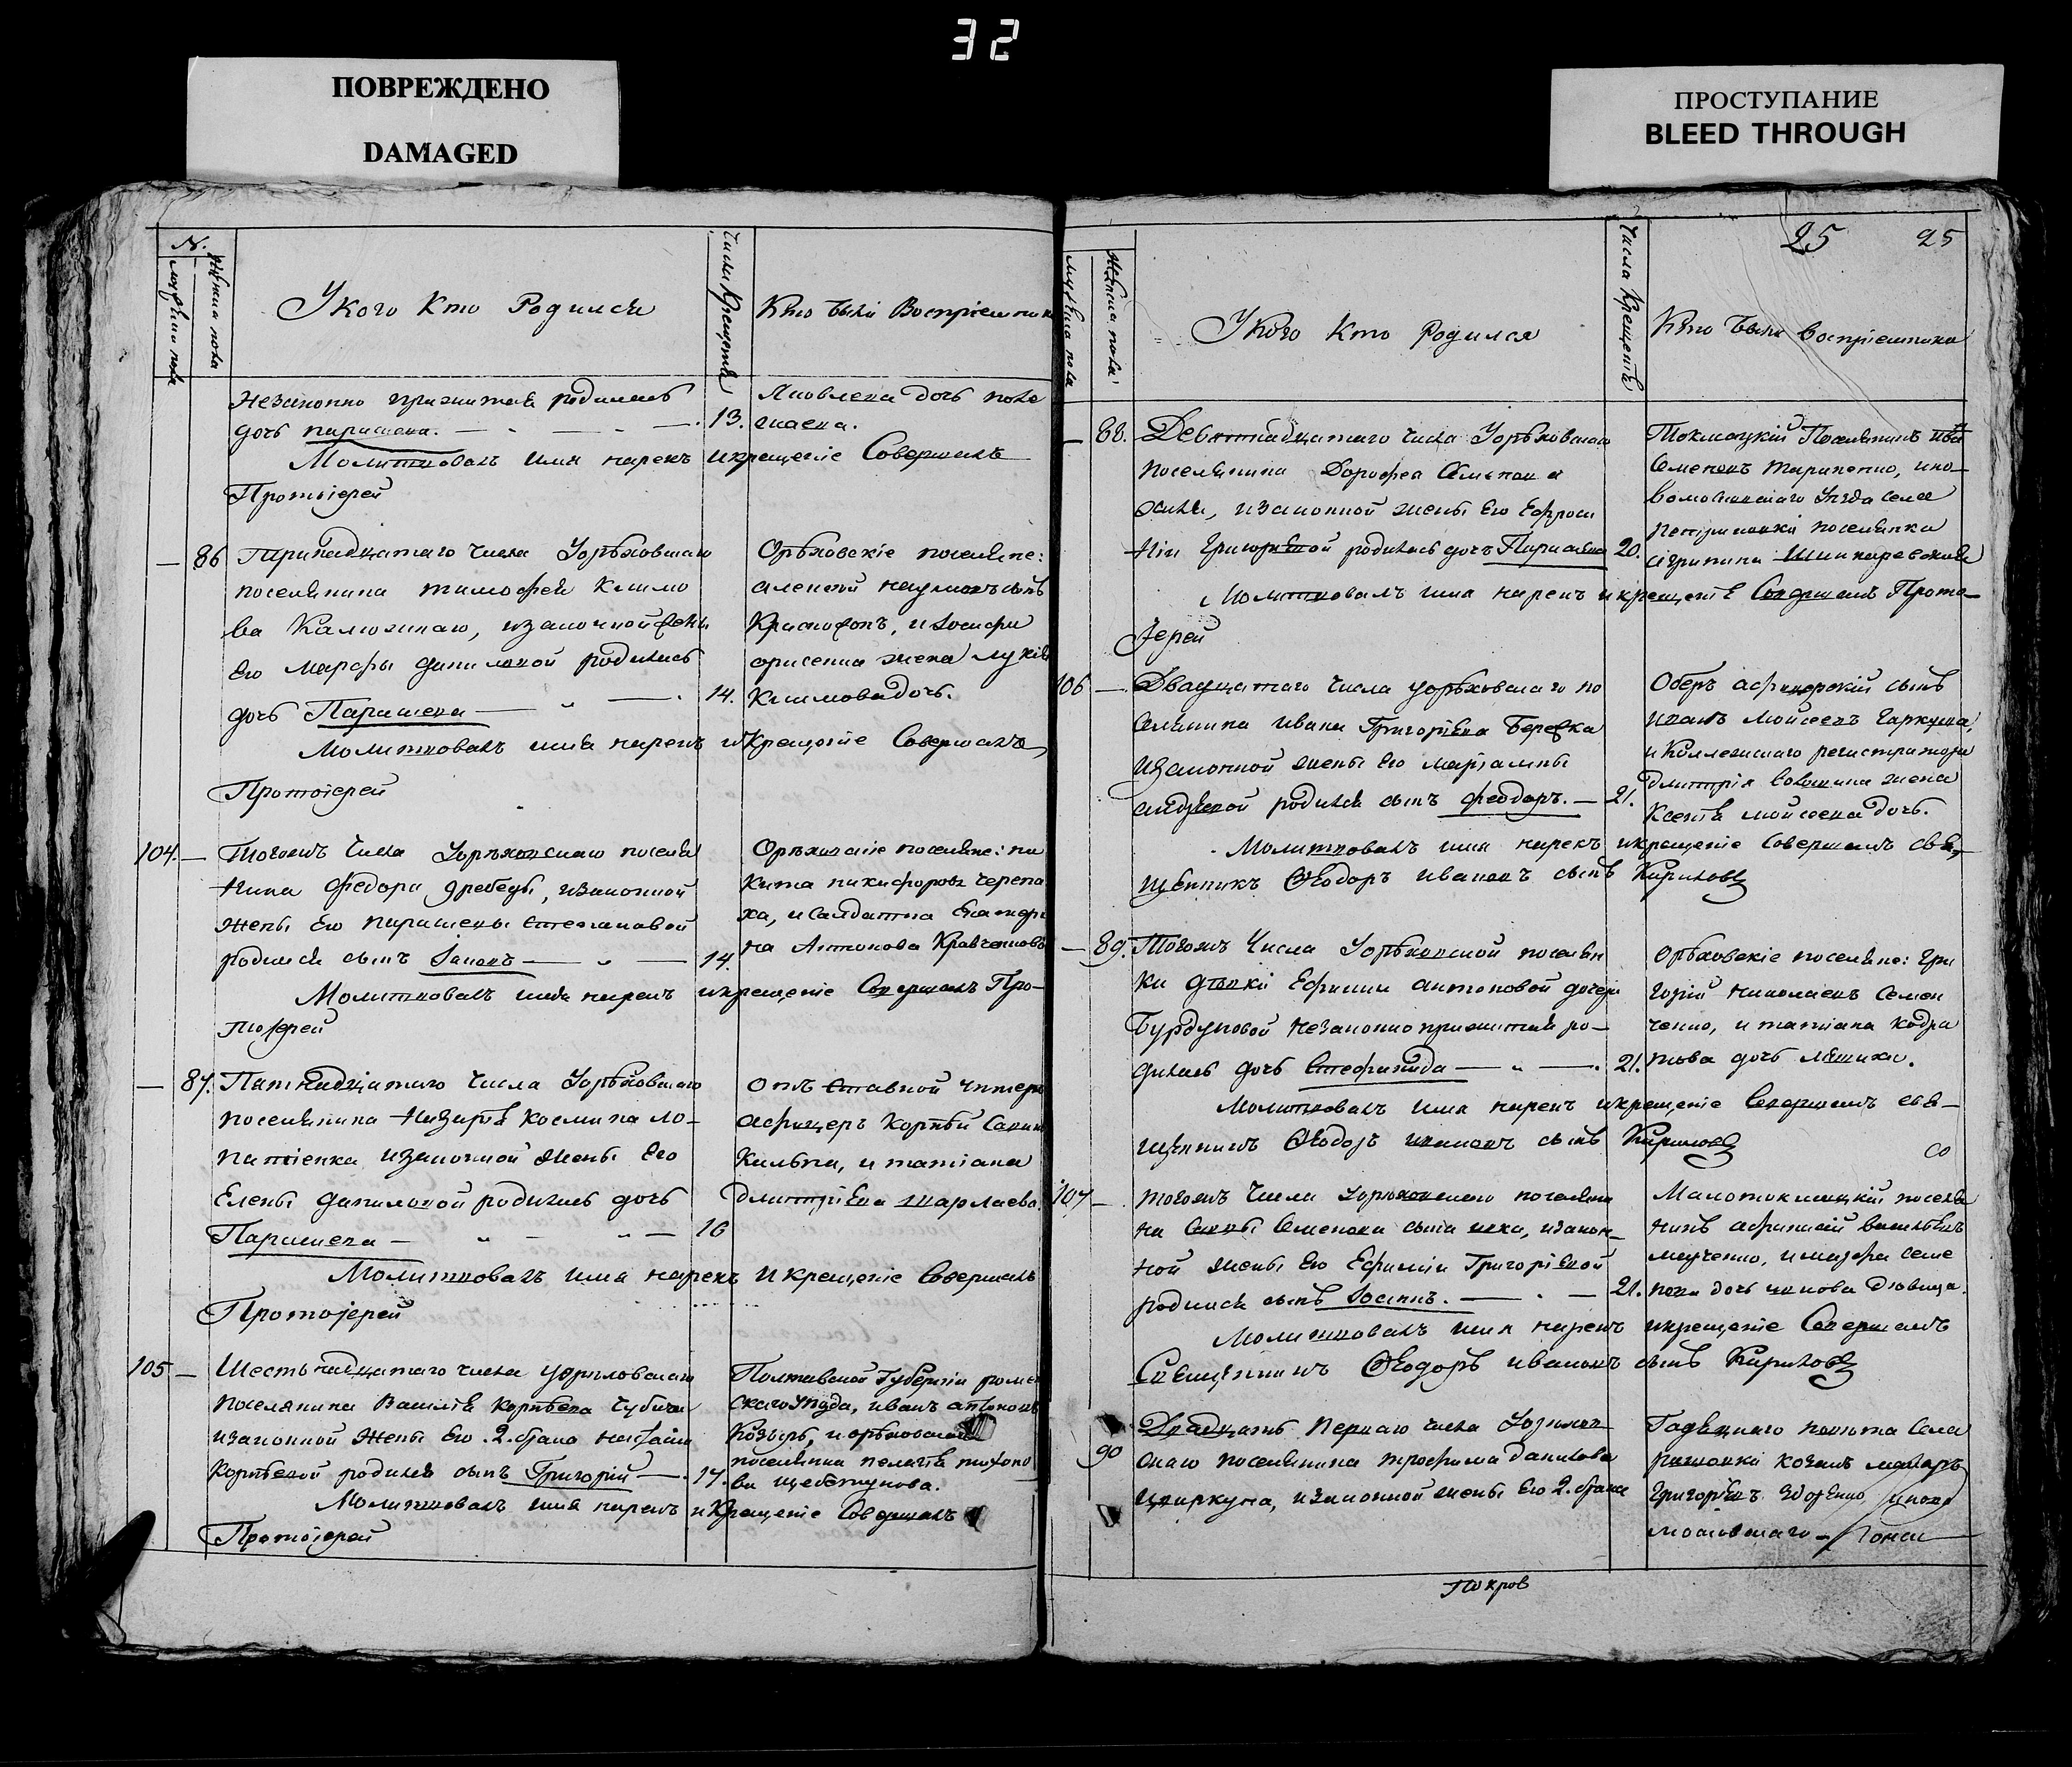 32
ПОВРЕЖДЕНО
DAMAGED
ПРОСТУПАНИЕ
BLEED THROUGH
№.
мужеска пола
женска пола
Укого Кто Родился
Числа Крещенія
Кто были Воспріемники
незаконно прижитая родилась
дочь параскева. 13.
Яковлева дочь
Молитвовалъ имя нарекъ икрещеніе Совершалъ
Протоіерей
86
Тринадцатаго числа Уорѣховскаго
поселянина тимофея климо
ва Калюжнаго, изаконной жены
его марфы даниловой родилась
дочь Параскева 14.
Орѣховскіе поселяне:
алексѣй наумовъ сынъ
жена лукія
климова дочь.
Молитвовалъ имя нарекъ икрещеніе Совершалъ
Протоіерей
104.
Тогожъ числа Уорѣховскаго поселя
нина федора дребеды, изаконной
жены его параскевы стефановой
родился сынъ Іаковъ 14.
Орѣховскіе поселяне: ни
кита никифоровъ черепа
ха, исалдатка Екатери
на Антонова Кравченкова
Молитвовалъ имя нарекъ икрещеніе Совершалъ Про-
тоіерей
87.
Пятнадцатаго числа Уорѣховскаго
поселянина Назарія космина ло-
патіенка изаконной жены его
Елены даниловой родилась дочь
Параскева 16
Отъ ставной унтеръ
афицеръ Корнѣй
и татіана
Дмитріева шарлаева.
Молитвовалъ имя нарекъ икрещеніе Совершалъ
Протоіерей
105
Шестьнадцатаго числа уорѣховскаго
поселянина Василія корнѣева
изаконной жены его .2. брака наталіи
корнѣевой родился сынъ Григорій 17.
Полтавской Губерніи роме
скаго уѣзда, иванъ антоновъ
Козырь, и орѣховская
поселянка пелагія тихоно
ва щебетунова.
Молитвовалъ имя нарекъ икрещеніе Совершалъ
Протоіерей
25 25
мужеска пола
женска пола
Укого Кто Родился
Числа Крещенія
Кто были воспріемники
88.
Девятнадцатаго числа Уорѣховскаго
поселянина Дорофея Семенова
изаконной жены его Ефроси
ніи Григорьевой родилась дочь Параскева 20.
Токмацкій Поселянинъ ива
Семеновъ тарапенко, ино-
вомосковскаго уѣзда села
петриковки поселянка
агрипина
Молитвовалъ имя нарекъ икрещеніе Совершалъ Прото-
Іерей
106
Двадцатаго числа уорѣховскаго по
селянина ивана Григоріева Березка
изаконной жены его маріамны
родился сынъ феодоръ. 21.
Оберъ афицерскій сынъ
иванъ мойсеевъ гаркуша,
и Коллежскаго регистратора
Дмитрія жена
Ксенія мойсеева дочь.
Молитвовалъ имя нарекъ икрещеніе Совершалъ свя-
щенникъ Ѳеодоръ ивановъ сынъ Кириловъ
89.
Тогожъ числа Уорѣховской поселян
ки дѣвки Ефиміи антоновой дочери
Бурдуновой незаконно прижитая ро-
дилась дочь Стефанида 21.
Орѣховскіе поселяне: Гри
горій Николаевъ Семен
ченко, и татіана кодра
това дочь
Молитвовалъ имя нарекъ икрещеніе Совершалъ свя-
щенникъ Ѳеодоръ ивановъ сынъ Кириловъ
107
тогожъ числа Уорѣховскаго поселяни
на Саввы Семенова сына изакон-
ной жены его Ефиміи Григоріевой
родился сынъ Іосифъ. 21.
Малотокмацкій поселя
нинъ афанасій васильевъ
и марфа семе
нова дочь дѣвица.
Молитвовалъ имя нарекъ икрещеніе Совершалъ
Священникъ Ѳеодоръ ивановъ сынъ Кириловъ
90
Двадцать Перваго числа Уорѣхов
скаго поселянина трофима данилова
изаконной жены его 2. брака
Гадяцкаго повѣта села
рашовки козакъ макаръ
Григорьевъ
московскаго
Покров